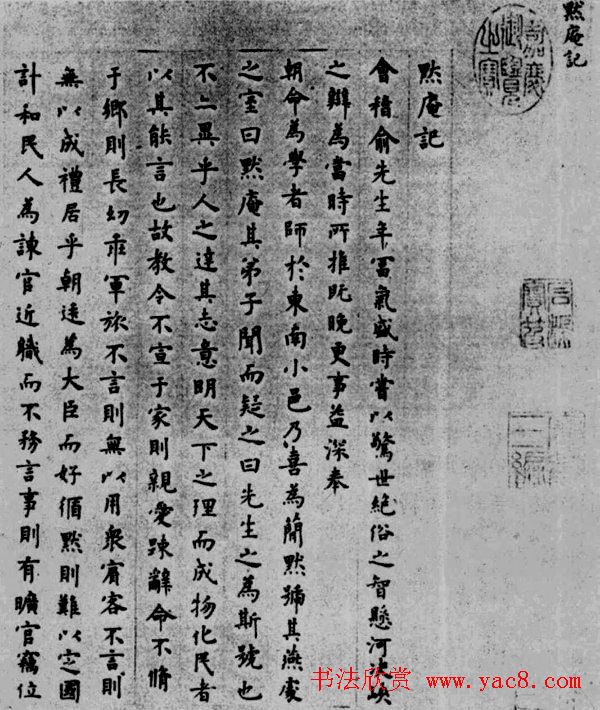 默庵記
嘉慶御覽之寶
石渠寶笈
默庵記
會稽俞先生年富氣盛時嘗以驚世絕俗之智懸河決峽
之辯為當時所推既晚更事益深奉
朝命為學者師於東南小邑乃喜為簡默號其燕處
之室曰默庵其弟子聞而疑之曰先生之為斯號也
不亦異乎人之達其志意明天下之理而成物化民者
以其能言也故教令不宣于家則親愛踈辭命不脩
于鄉則長幼乖軍旅不言則無以用衆賓客不言則
無以成禮居乎朝廷為大臣而好循默則難以定國
計和民人為諫官近職而不務言事則有曠官竊位
书法欣赏 www.yac8.com